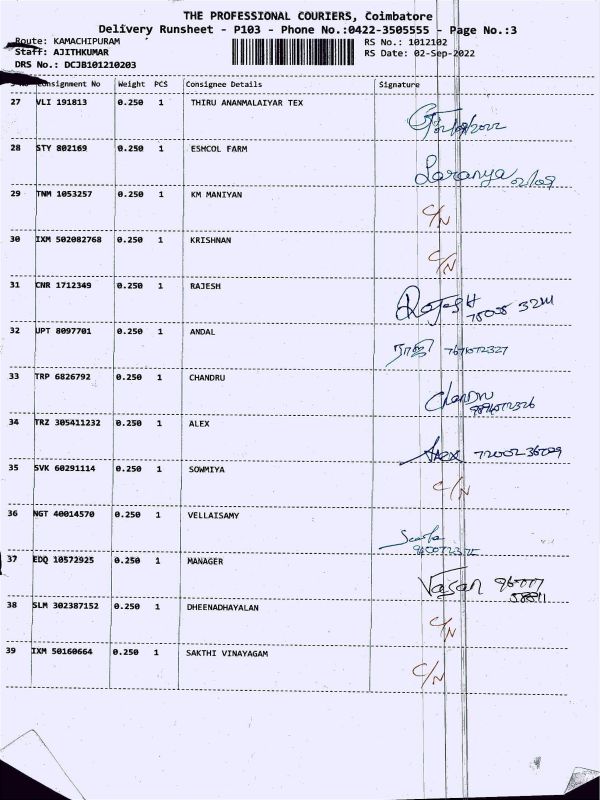 THE PROFESSIONAL COURIERS, Coimbatore
Delivery Runsheet - P103 - Phone No.:0422-3505555 - Page No.:3
Route: KAMACHIPURAM RS No.: 1012102
Staff: AJITHKUMAR RS Date: 02-Sep-2022
DRS No.: DCJB101210203
Consignment No Weight PCS Consignee Details Signature
27 VLI 191813 0.250 1 THIRU ANANMALAIYAR TEX
28 STY 802169 0.250 1 ESHCOL FARM Saranya 02/09
29 TNM 1053257 0.250 1 KM MANIYAN C/N
30 IXM 502082768 0.250 1 KRISHNAN C/N
31 CNR 1712349 0.250 1 RAJESH
32 UPT 8097701 0.250 1 ANDAL 7671572327
33 TRP 6826792 0.250 1 CHANDRU Chandru
34 TRZ 305411232 0.250 1 ALEX Alex
35 SVK 60291114 0.250 1 SOWMIYA C/N
36 NGT 40014570 0.250 1 VELLAISAMY
37 EDQ 10572925 0.250 1 MANAGER Vasan
38 SLM 302387152 0.250 1 DHEENADHAYALAN C/N
39 IXM 50160664 0.250 1 SAKTHI VINAYAGAM C/N